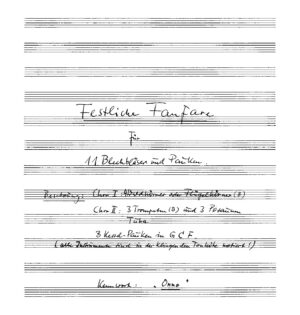 Festliche Fanfare
für
11 Blechbläser und Pauken.
Besetzung: Chor I: Waldhörner oder Flügelhörner (B)
Chor II: 3 Trompeten (B) und 3 Posaunen
Tuba
3 Kessel-Pauken in G C F.
(alle Instrumente sind in der klingenden Tonhöhe notiert!)
Kennwort: „Onno"